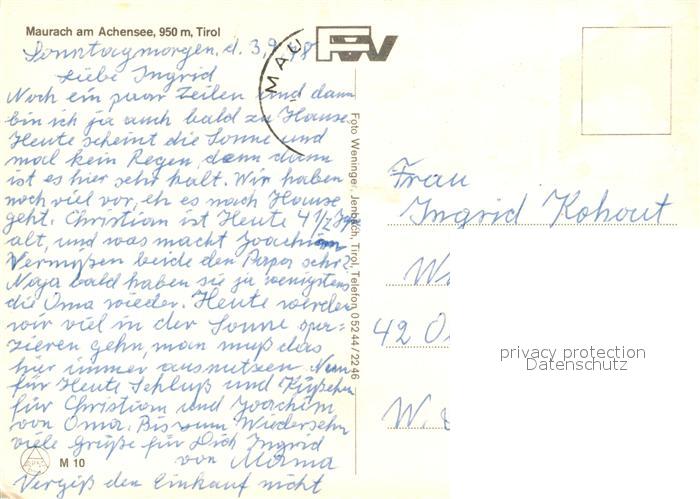 Maurach am Achensee, 950 m, Tirol
Sonntagmorgen, d. 3,9,
Liebe Ingrid
Noch ein paar Zeilen und dann
bin ich ja auch bald zu Hause
Heute scheint die Sonne und
mal kein Regen, denn dann
ist es hier sehr kalt. Wir haben
noch viel vor, eh es nach Hause
geht. Christian ist Heute 4 1/2
alt, und was macht Joachim
Vermißen beide den Papa sehr?
Naja bald haben sie ja wenigstens
die Oma wieder. Heute werden
wir viel in der Sonne spa=
zieren gehn, man muß das
hier immer ausnutzen. Nun
für Heute Schluß und Küßchen
für Christian und Joachim
von Oma. Bis zum Wiedersehn
viele Grüße für Dich Ingrid
von Mama
Vergiß den Einkauf nicht
M 10
MAU
PW
Foto Weninger, Jenbach, Tirol, Telefon 05244/2246
Frau
Ingrid Kohout
42 O
W.
privacy protection
Datenschutz